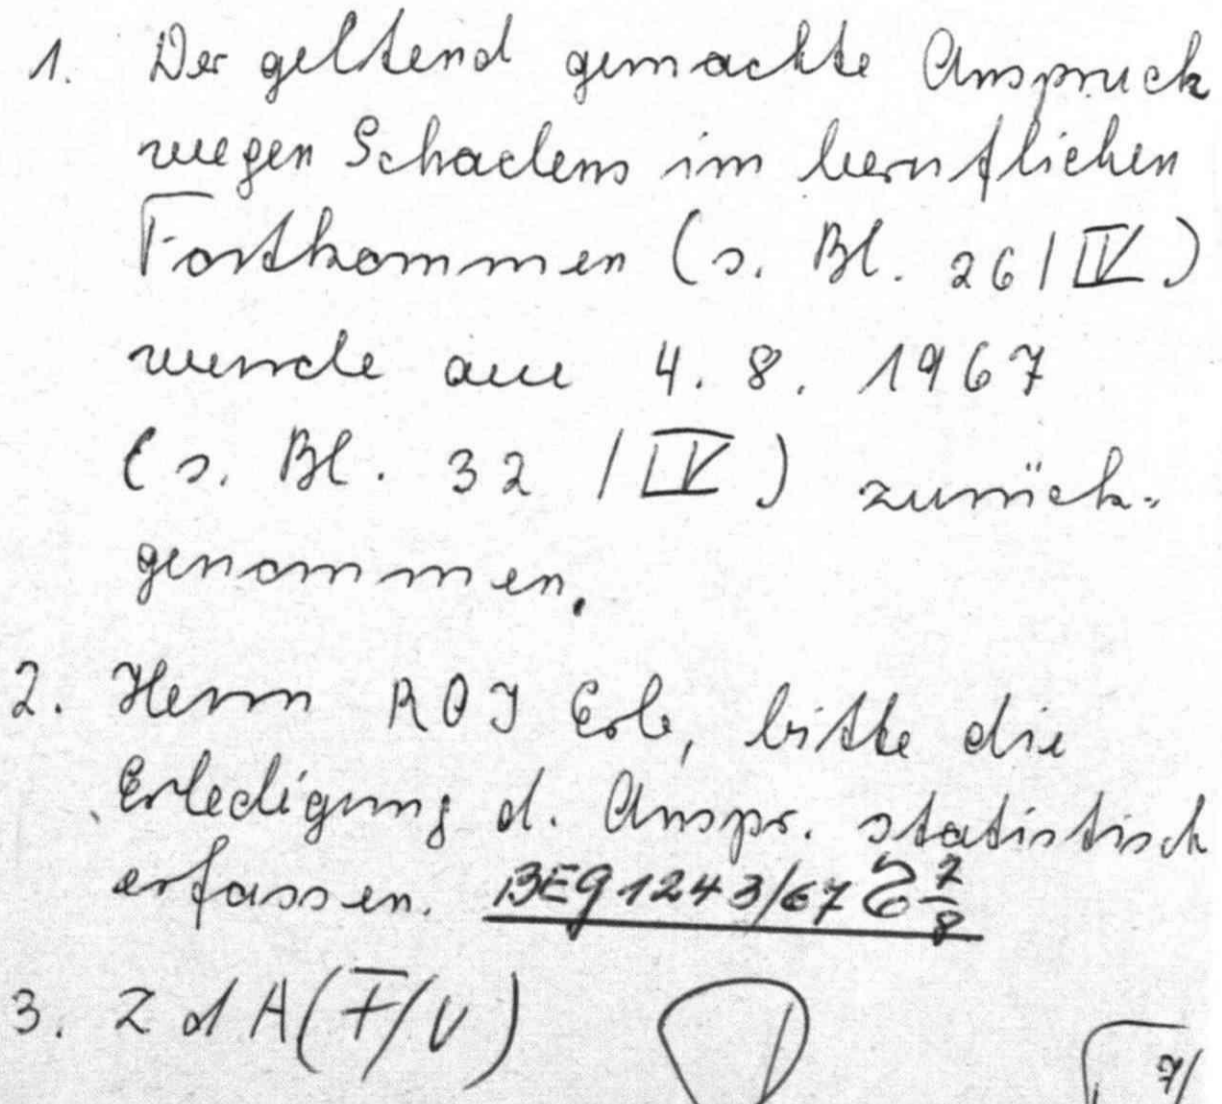 1. Der geltend gemachte Anspruch
wegen Schadens im beruflichen
Fortkommen (s. Bl. 26/IV)
wurde am 4.8.1967
(s. Bl. 32/IV) zurück-
genommen.
2. Herrn ROI Erb, bitte die
Erledigung d. Anspr. statistisch
erfassen. BEG 1243/67 7/8
3. ZdA (F/V)
7/